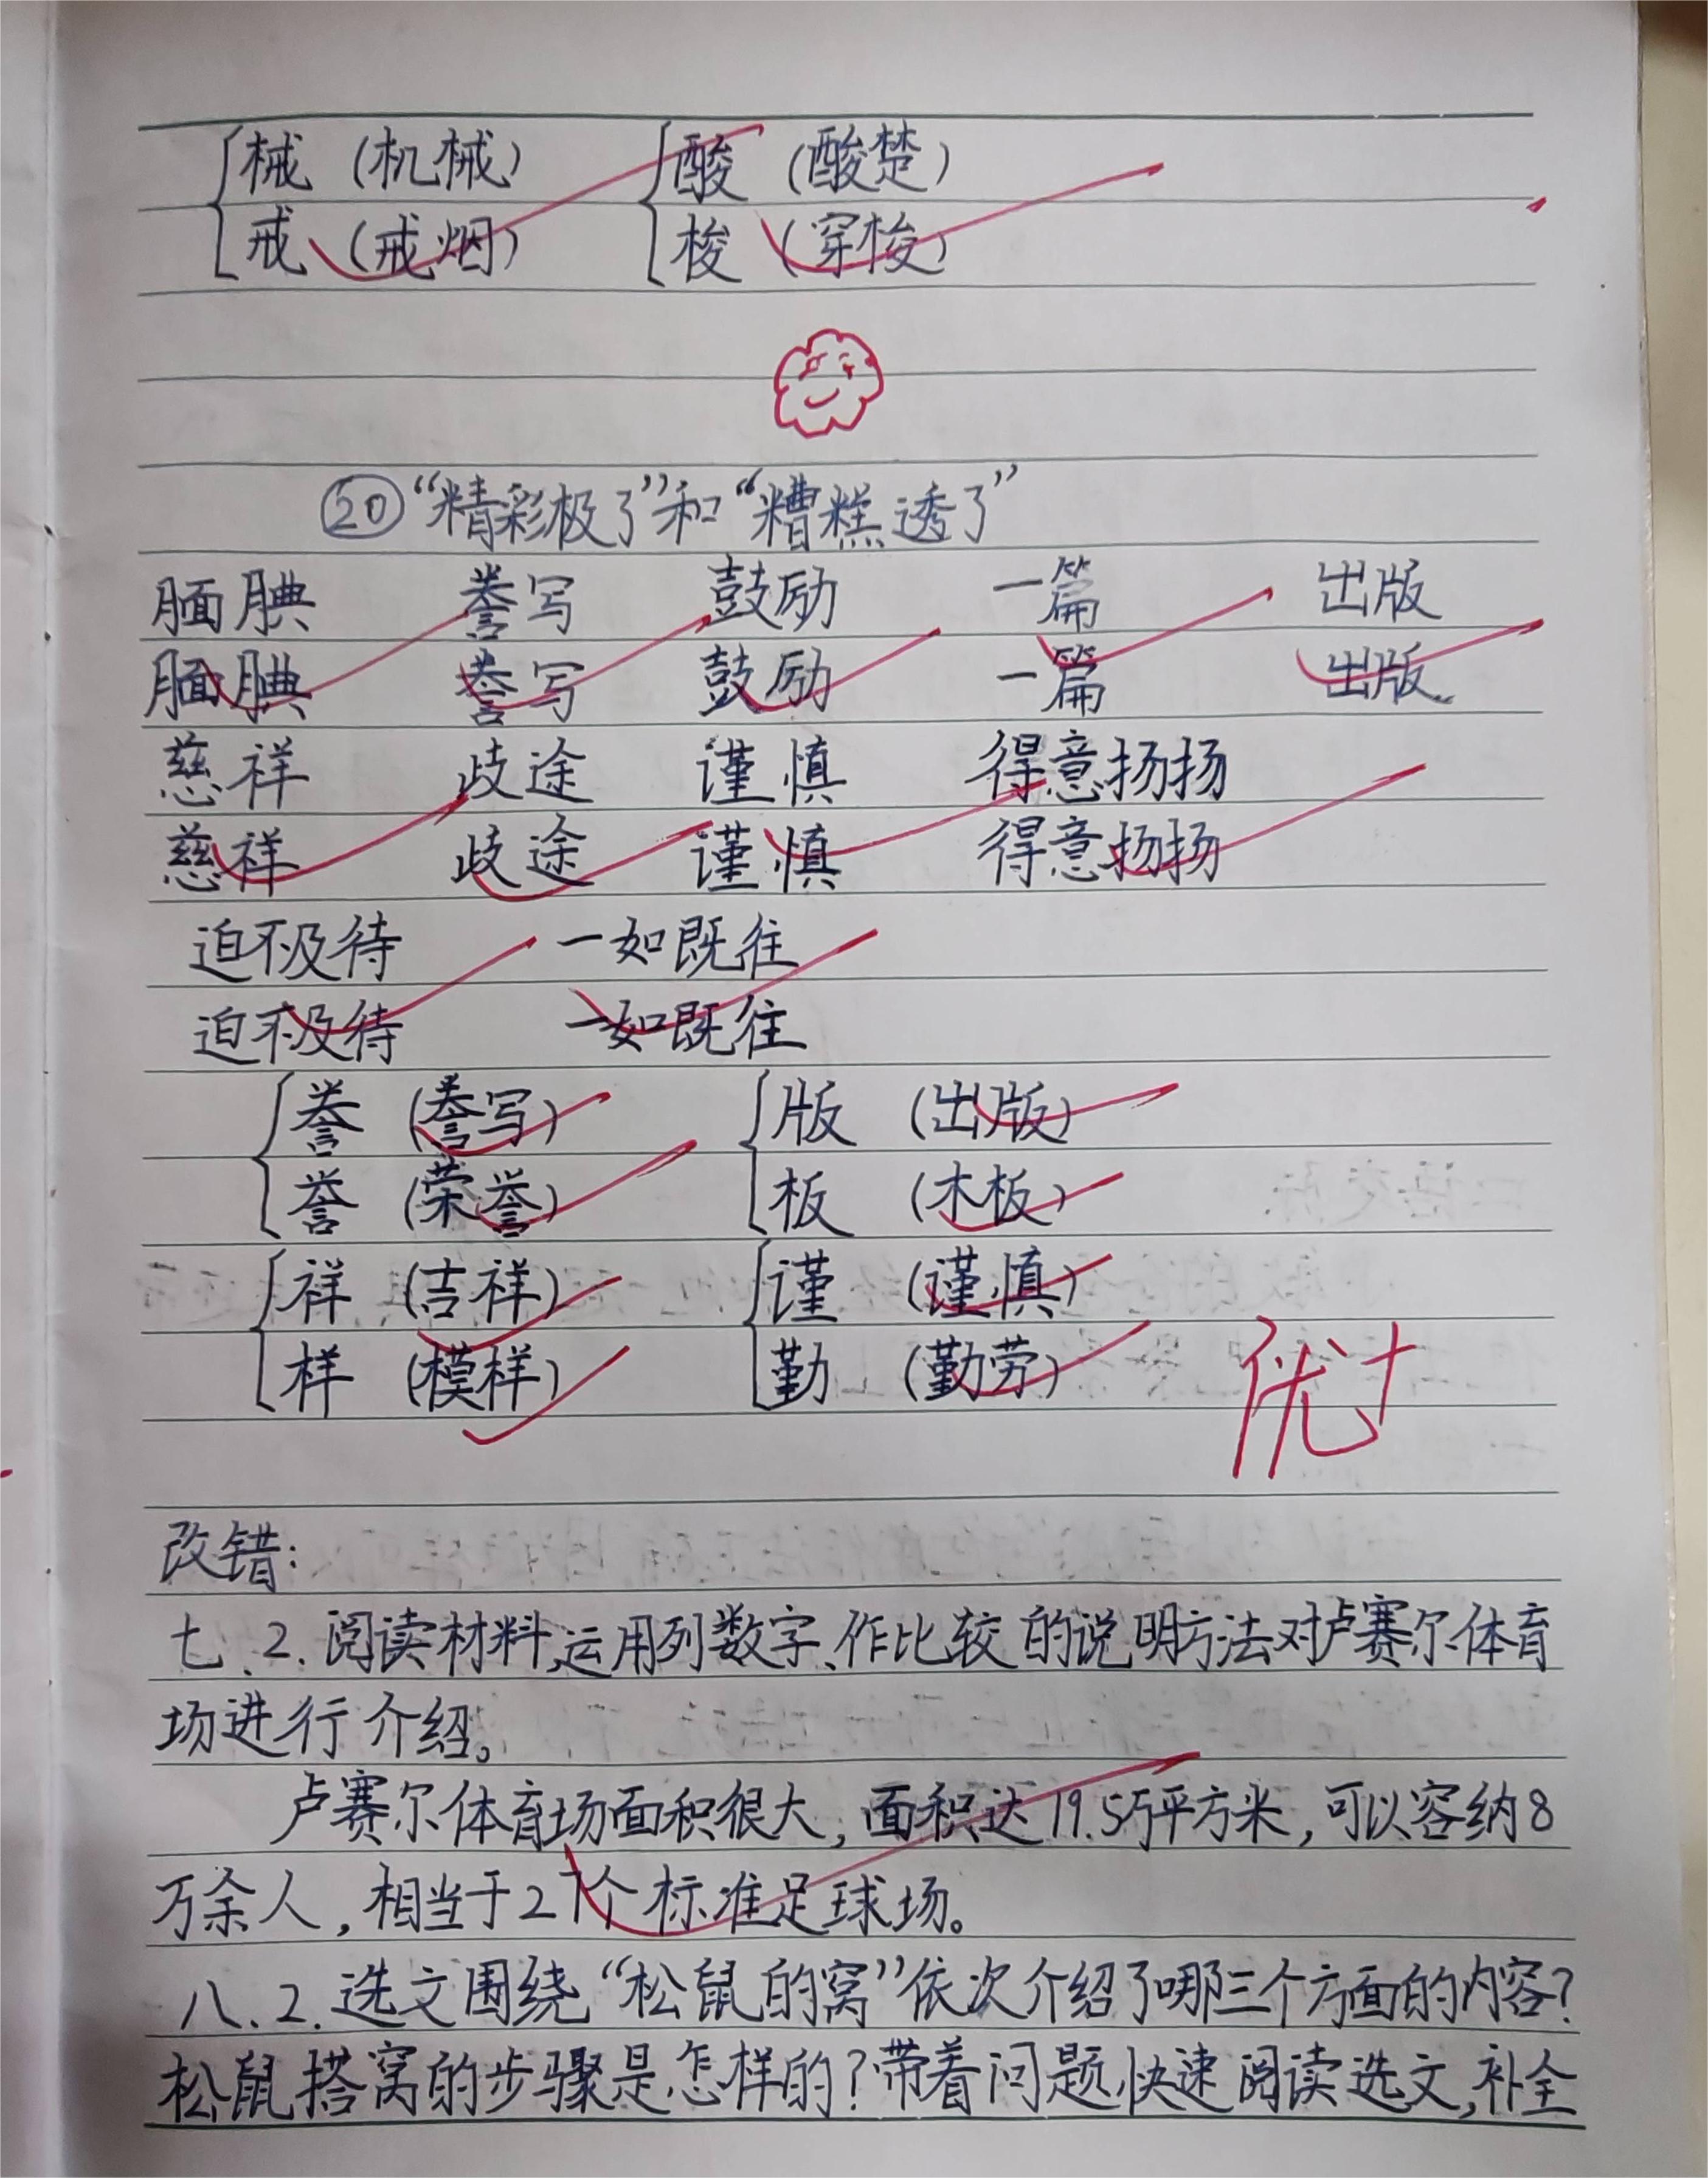 械（机械） 酸（酸楚）
戒（戒烟） 梭（穿梭）
⑳“精彩极了”和“糟糕透了”
腼腆 誊写 鼓励 一篇 出版
腼腆 誊写 鼓励 一篇 出版
慈祥 歧途 谨慎 得意扬扬
慈祥 歧途 谨慎 得意扬扬
迫不及待 一如既往
迫不及待 一如既往
誊（誊写） 版（出版）
誉（荣誉） 板（木板）
祥（吉祥） 谨（谨慎）
样（模样） 勤（勤劳）
优+
改错：
七.2.阅读材料,运用列数字、作比较的说明方法对卢赛尔体育
场进行介绍。
卢赛尔体育场面积很大，面积达19.5万平方米，可以容纳8
万余人，相当于27个标准足球场。
八.2.选文围绕“松鼠的窝”依次介绍了哪三个方面的内容？
松鼠搭窝的步骤是怎样的？带着问题快速阅读选文，补全